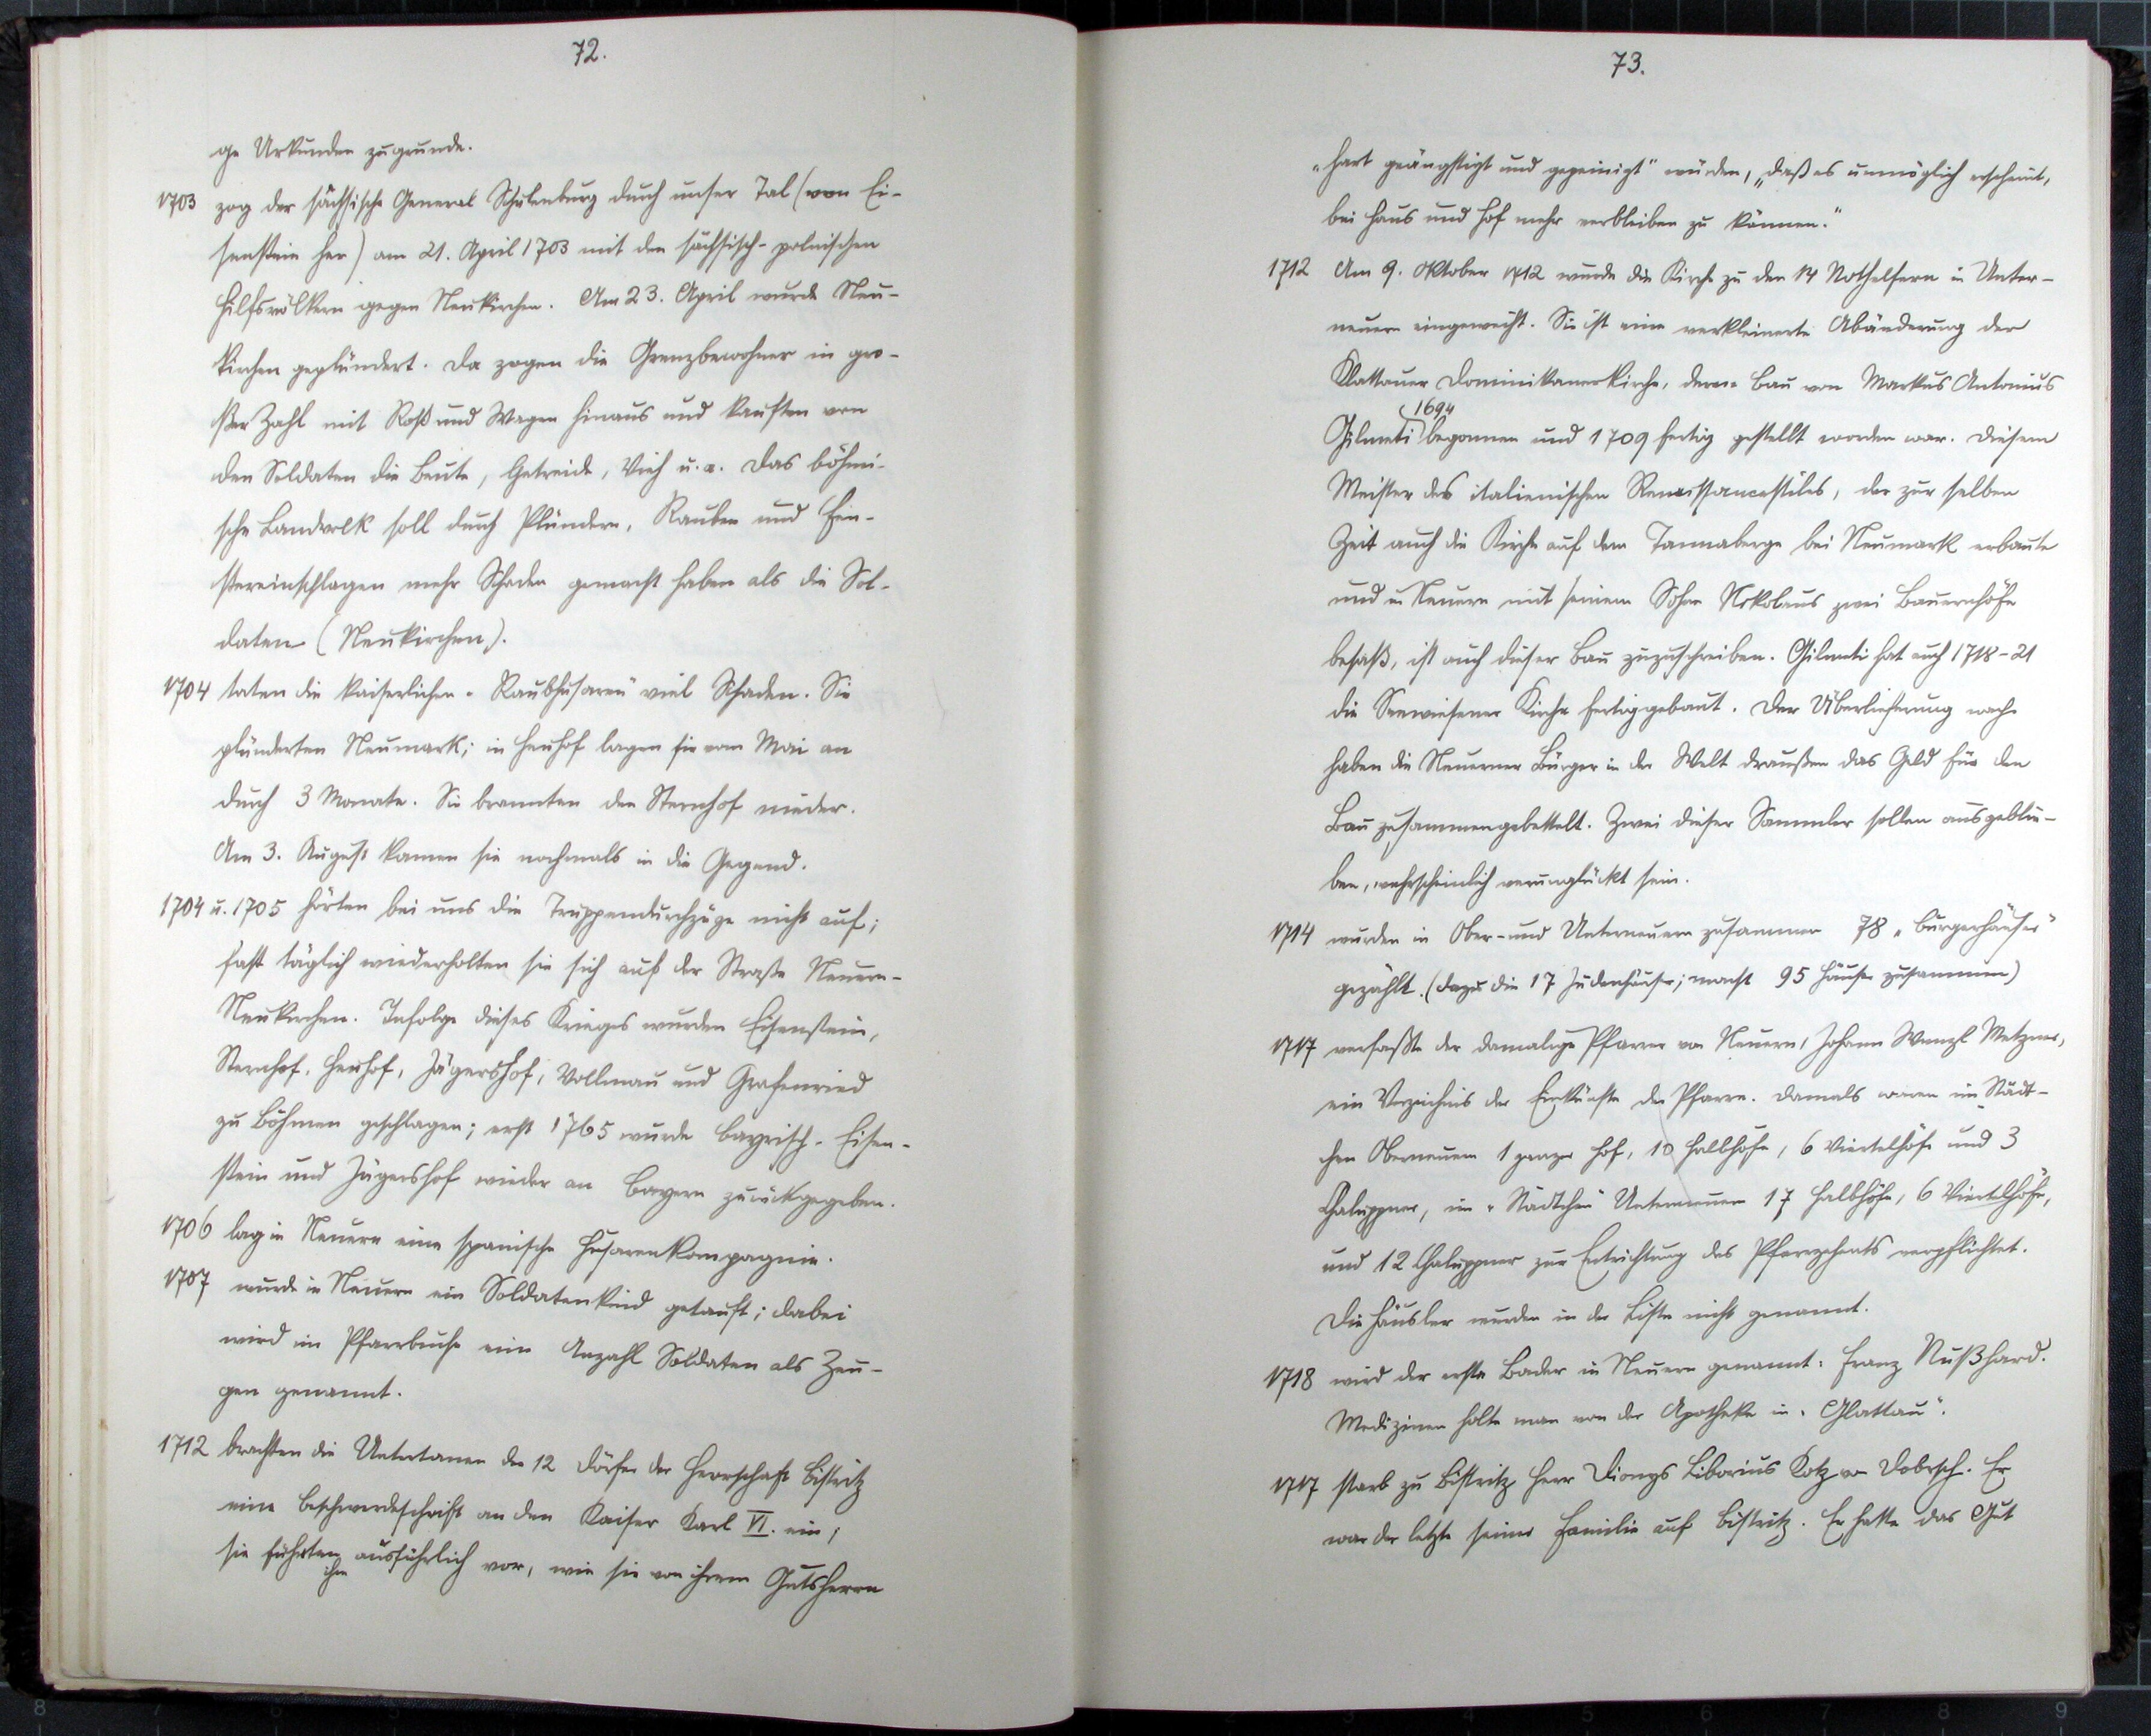 72.
ge Urkunden zugrunde.
1703 zog der sächsische General Schulenburg durch unser Tal (von Ei-
senstein her) am 21. April 1703 mit den sächsisch-polnischen
Hilfsvölkern gegen Neukirchen. Am 23. April wurde Neu-
kirchen geplündert. Da zogen die Grenzbewohner in gro-
ßer Zahl mit Roß und Wagen hinaus und kauften von
den Soldaten die Beute, Getreide, Vieh u. a. Das böhmi-
sche Landvolk soll durch Plündern, Rauben und Fen-
stereinschlagen mehr Schaden gemacht haben als die Sol-
daten (Neukirchen).
1704 taten die kaiserlichen "Raubhusaren" viel Schaden. Sie
plünderten Neumark; in Heuhof lagen sie vom Mai an
durch 3 Monate. Sie brannten den Sternhof nieder.
Am 3. August kamen sie nochmals in die Gegend.
1704 u. 1705 hörten bei uns die Truppendurchzüge nicht auf;
fast täglich wiederholten sie sich auf der Straße Neuern-
Neukirchen. Infolge dieses Krieges wurden Eisenstein,
Sternhof, Heuhof, Jägershof, Vollmau und Grafenried
zu Böhmen geschlagen; erst 1765 wurde bayrisch-Eisen-
stein und Jägershof wieder an Bayern zurückgegeben.
1706 lag in Neuern eine spanische Husarenkompagnie.
1707 wurde in Neuern ein Soldatenkind getauft; dabei
wird im Pfarrbuche eine Anzahl Soldaten als Zeu-
gen genannt.
1712 brachten die Untertanen der 12 Dörfer der Herrschaft Bistritz
eine Beschwerdeschrift an den Kaiser Karl VI. ein;
sie führten ihm ausführlich vor, wie sie von ihrem Gutsherrn
73.
"hart geängstigt und gepeinigt" würden, "daß es unmöglich erscheint,
bei Haus und Hof mehr verbleiben zu können."
1712 Am 9. Oktober 1712 wurde die Kirche zu den 14 Nothelfern in Unter-
neuern eingeweiht. Sie ist eine verkleinerte Abänderung der
Klattauer Dominikanerkirche, deren Bau von Markus Antonius
Gilmeti 1694 begonnen und 1709 fertig gestellt worden war. Diesem
Meister des italienischen Renaissancestiles, der zur selben
Zeit auch die Kirche auf dem Tannaberge bei Neumark erbaute
und in Neuern mit seinem Sohne Nikolaus zwei Bauernhöfe
besaß, ist auch dieser Bau zuzuschreiben. Gilmeti hat auch 1718-21
die Seewiesener Kirche fertiggebaut. Der Überlieferung nach
haben die Neuerner Bürger in der Welt draußen das Geld für den
Bau zusammengebettelt. Zwei dieser Sammler sollen ausgeblie-
ben, wahrscheinlich verunglückt sein.
1714 wurden in Ober- und Unterneuern zusammen 78 "Bürgerhäuser"
gezählt. (dazu die 17 Judenhäuser; macht 95 Häuser zusammen)
1717 verfaßte der damalige Pfarrer von Neuern, Johann Wenzl Metzner,
ein Verzeichnis der Einkünfte der Pfarre. Damals waren im Städt-
chen Oberneuern 1 ganzer Hof, 10 Halbhöfe, 6 Viertelhöfe und 3
Chaluppner, im "Städtchen" Unterneuern 17 Halbhöfe, 6 Viertelhöfe,
und 12 Chaluppner zur Entrichtung des Pfarrzehents verpflichtet.
Die Häusler wurden in der Liste nicht genannt.
1718 wird der erste Bader in Neuern genannt: Franz Nußhard.
Medizinen holte man von der Apotheke in "Glattau".
1717 starb zu Bistritz Herr Dionys Liborius Kotz von Dobrsch. Er
war der letzte seiner Familie auf Bistritz. Er hatte das Gut